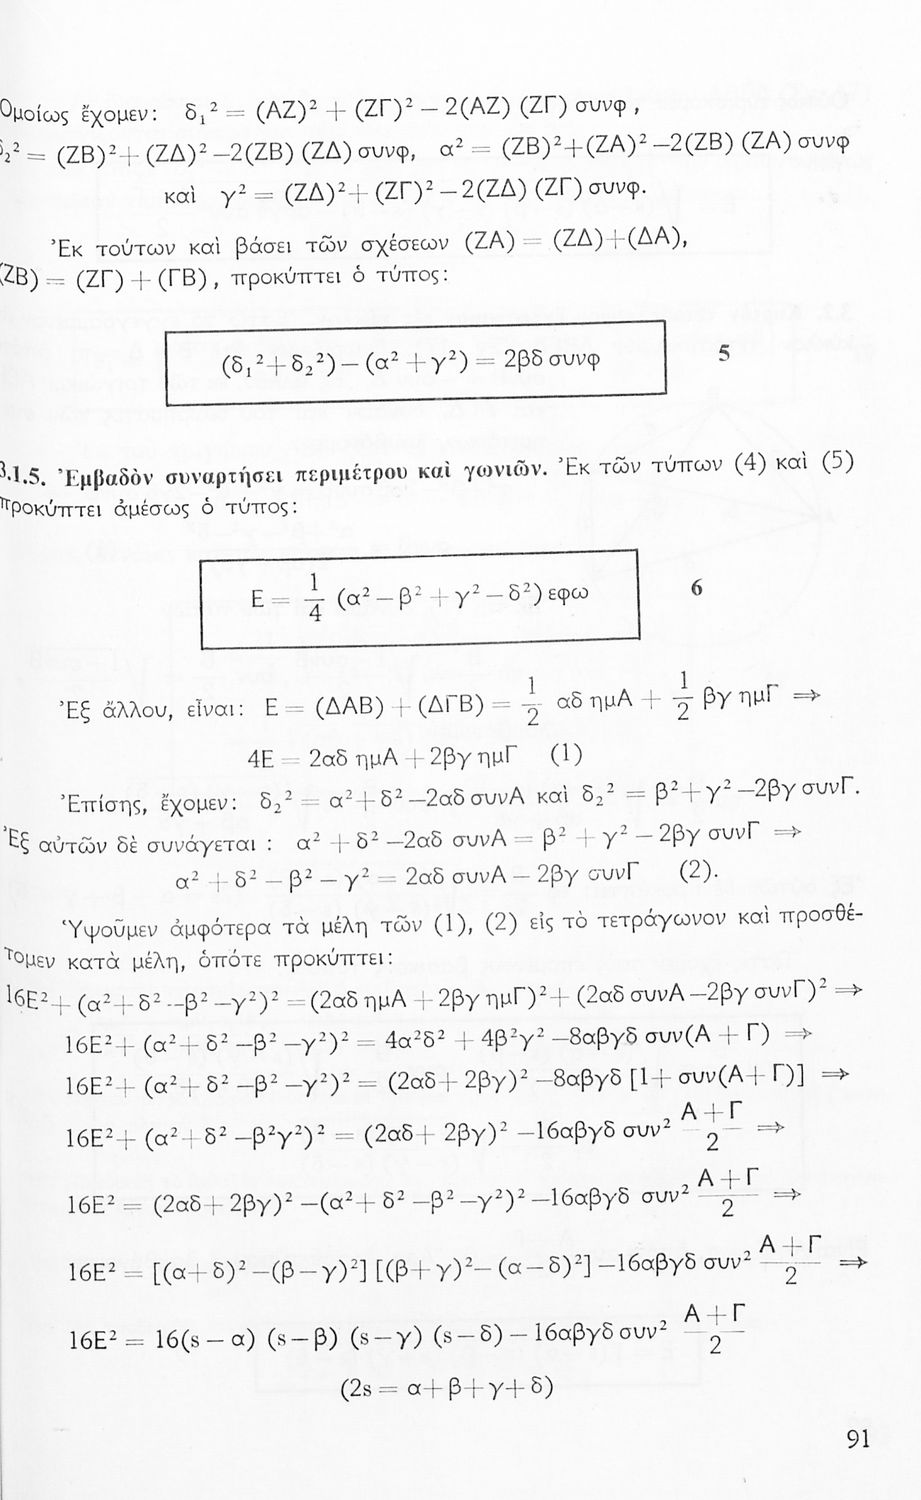 Ὁμοίως ἔχομεν: δ₁² = (ΑΖ)² + (ΖΓ)² – 2(ΑΖ) (ΖΓ) συνφ ,
δ₂² = (ΖΒ)² + (ΖΔ)² –2(ΖΒ) (ΖΔ) συνφ, α² = (ΖΒ)²+(ΖΑ)² –2(ΖΒ) (ΖΑ) συνφ
καὶ γ² = (ΖΔ)² + (ΖΓ)² – 2(ΖΔ) (ΖΓ) συνφ.
Ἐκ τούτων καὶ βάσει τῶν σχέσεων (ΖΑ) = (ΖΔ)+(ΔΑ),
(ΖΒ) = (ΖΓ) + (ΓΒ) , προκύπτει ὁ τύπος:
(δ₁² + δ₂²) – (α² + γ²) = 2βδ συνφ 5
3.1.5. Ἐμβαδὸν συναρτήσει περιμέτρου καὶ γωνιῶν. Ἐκ τῶν τύπων (4) καὶ (5)
προκύπτει ἀμέσως ὁ τύπος:
Ε = 1/4 (α² – β² + γ² – δ²) εφω 6
Ἐξ ἄλλου, εἶναι: Ε = (ΔΑΒ) + (ΔΓΒ) = 1/2 αδ ημΑ + 1/2 βγ ημΓ ⇒
4Ε = 2αδ ημΑ + 2βγ ημΓ (1)
Ἐπίσης, ἔχομεν: δ₂² = α² + δ² –2αδ συνΑ καὶ δ₂² = β² + γ² –2βγ συνΓ.
Ἐξ αὐτῶν δὲ συνάγεται : α² + δ² –2αδ συνΑ = β² + γ² – 2βγ συνΓ ⇒
α² + δ² – β² – γ² = 2αδ συνΑ – 2βγ συνΓ (2).
Ὑψοῦμεν ἀμφότερα τὰ μέλη τῶν (1), (2) εἰς τὸ τετράγωνον καὶ προσθέ-
τομεν κατὰ μέλη, ὁπότε προκύπτει:
16Ε² + (α² + δ² –β² –γ²)² = (2αδ ημΑ + 2βγ ημΓ)² + (2αδ συνΑ –2βγ συνΓ)² ⇒
16Ε² + (α² + δ² –β² –γ²)² = 4α²δ² + 4β²γ² –8αβγδ συν(Α + Γ) ⇒
16Ε² + (α² + δ² –β² –γ²)² = (2αδ + 2βγ)² –8αβγδ [1 + συν(Α + Γ)] ⇒
16Ε² + (α² + δ² –β²γ²)² = (2αδ + 2βγ)² –16αβγδ συν² (Α + Γ)/2 ⇒
16Ε² = (2αδ + 2βγ)² –(α² + δ² –β² –γ²)² –16αβγδ συν² (Α + Γ)/2 ⇒
16Ε² = [(α + δ)² –(β – γ)²] [(β + γ)² – (α – δ)²] –16αβγδ συν² (Α + Γ)/2 ⇒
16Ε² = 16(s – α) (s – β) (s – γ) (s – δ) – 16αβγδ συν² (Α + Γ)/2
(2s = α + β + γ + δ)
91